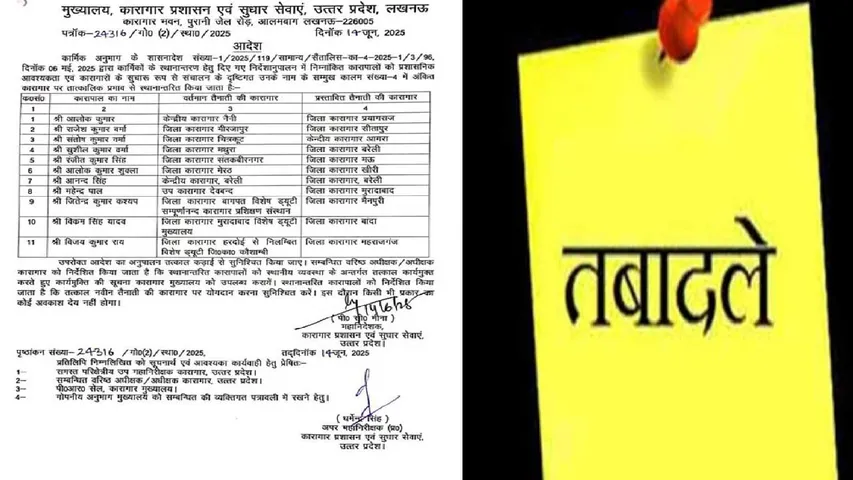 मुख्यालय, कारागार प्रशासन एवं सुधार सेवाऐं, उत्तर प्रदेश, लखनऊ
कारागार भवन, पुरानी जेल रोड़, आलमबाग लखनऊ-226005
पत्राँक-24316/गो0 (2)/स्था0/2025 दिनाँक 14 जून, 2025
आदेश
कार्मिक अनुभाग के शासनादेश संख्या-1/2025/119/सामान्य/सैंतालिस-का-4-2025-1/3/96,
दिनाँक 06 मई, 2025 द्वारा कार्मिकों के स्थानान्तरण हेतु दिए गए निर्देशानुपालन में निम्नांकित कारापालों को प्रशासनिक
आवश्यकता एवं कारागारों के सुचारू रूप से संचालन के दृष्टिगत उनके नाम के सम्मुख कालम संख्या-4 में अंकित
कारागार पर तात्कालिक प्रभाव से स्थानान्तरित किया जाता है:-
क0सं0 कारापाल का नाम वर्तमान तैनाती की कारागार प्रस्तावित तैनाती की कारागार
1 2 3 4
1 श्री आलोक कुमार केन्द्रीय कारागार नैनी जिला कारागार प्रयागराज
2 श्री राजेश कुमार वर्मा जिला कारागार मीरजापुर जिला कारागार सीतापुर
3 श्री संतोष कुमार वर्मा जिला कारागार चित्रकूट केन्द्रीय कारागार आगरा
4 श्री सुशील कुमार वर्मा जिला कारागार मथुरा जिला कारागार बरेली
5 श्री रंजीत कुमार सिंह जिला कारागार संतकबीरनगर जिला कारागार मऊ
6 श्री आलोक कुमार शुक्ला जिला कारागार मेरठ जिला कारागार खीरी
7 श्री आनन्द सिंह केन्द्रीय कारागार, बरेली जिला कारागार, बरेली
8 श्री महेन्द्र पाल उप कारागार देवबन्द जिला कारागार मुरादाबाद
9 श्री जितेन्द्र कुमार कश्यप जिला कारागार बागपत विशेष ड्यूटी जिला कारागार मैनपुरी
सम्पूर्णानन्द कारागार प्रशिक्षण संस्थान
10 श्री विकम सिंह यादव जिला कारागार मुरादाबाद विशेष ड्यूटी जिला कारागार बांदा
मुख्यालय
11 श्री विजय कुमार राय जिला कारागार हरदोई से निलम्बित जिला कारागार महराजगंज
विशेष ड्यूटी जि0का0 कौशाम्बी
उपरोक्त आदेश का अनुपालन तत्काल कड़ाई से सुनिश्चित किया जाए। सम्बन्धित वरिष्ठ अधीक्षक/अधीक्षक
कारागार को निर्देशित किया जाता है कि स्थानान्तरित कारापालों को स्थानीय व्यवस्था के अन्तर्गत तत्काल कार्यमुक्त
करते हुए कार्यमुक्ति की सूचना कारागार मुख्यालय को उपलब्ध करायें। स्थानान्तरित कारापालों को निर्देशित किया
जाता है कि तत्काल नवीन तैनाती की कारागार पर योगदान करना सुनिश्चित करें। इस दौरान किसी भी प्रकार का
कोई अवकाश देय नहीं होगा।
14/6/25
( पी0 सी0 मीना )
महानिदेशक,
कारागार प्रशासन एवं सुधार सेवाऐं,
उत्तर प्रदेश।
पृष्ठांकन संख्या- 24316 /गो0(2)/स्था0/2025, तद्दिनाँक 14 जून, 2025
प्रतिलिपि निम्नलिखित को सूचनार्थ एवं आवश्यक कार्यवाही हेतु प्रेषित:-
1- समस्त परिक्षेत्रीय उप महानिरीक्षक कारागार, उत्तर प्रदेश।
2- सम्बन्धित वरिष्ठ अधीक्षक/अधीक्षक कारागार, उत्तर प्रदेश।
3- पी0आर0 सेल, कारागार मुख्यालय।
4- गोपनीय अनुभाग मुख्यालय को सम्बन्धित की व्यक्तिगत पत्रावली में रखने हेतु।
( धर्मेन्द्र सिंह )
अपर महानिरीक्षक (प्र0)
कारागार प्रशासन एवं सुधार सेवाऐं,
उत्तर प्रदेश।
तबादले